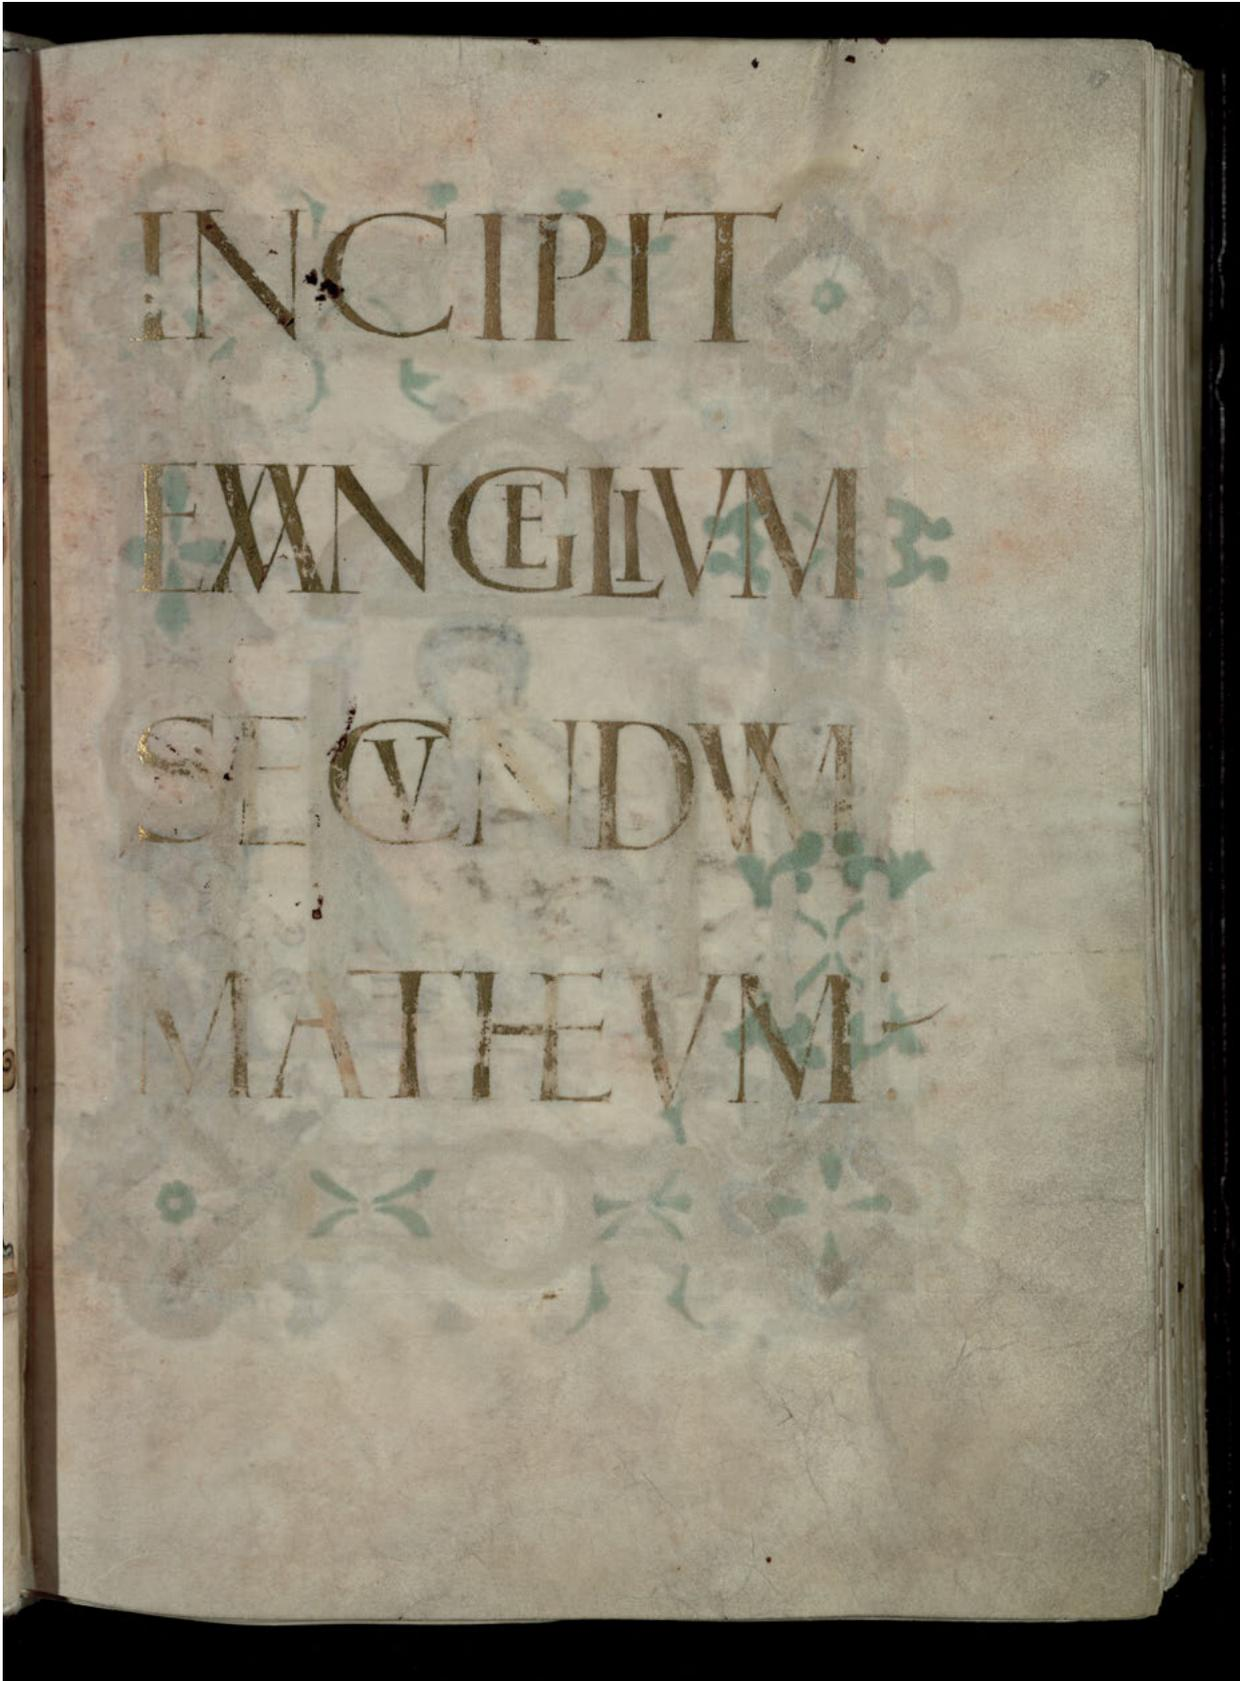 INCIPIT
EVVANGELIVM
SECVNDVM
MATHEVM